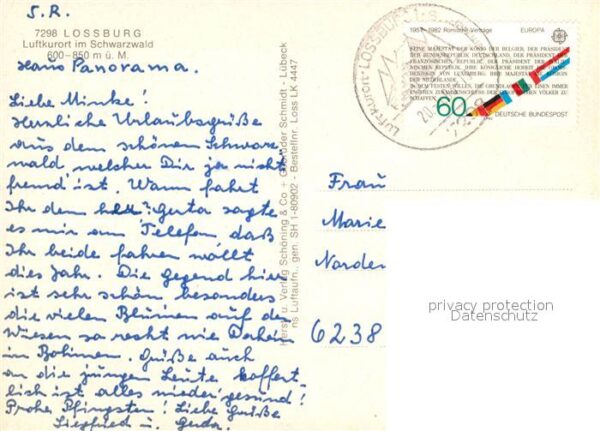 S.R.
7298 LOSSBURG
Luftkurort im Schwarzwald
600-850 m ü. M.
Haus Panorama.
Liebe Minke!
Herzliche Urlaubsgrüße
aus dem schönen Schwarz
wald welcher Dir ja nicht
fremd ist. Wann fahrt
Ihr denn ? Gerta sagte
es mir am Telefon daß
Ihr beide fahren wollt
dies Jahr. Die Gegend hier
ist sehr schön besonders
die vielen Blumen auf den
Wiesen so recht wie Daheim
in Böhmen. Grüße auch
an die jungen Leute hoffent
lich ist alles wieder gesund!
Frohe Pfingsten! Liebe Grüße
Siegfried u. Gerda.
Verlag Schöning & Co + Gebrüder Schmidt - Lübeck
Luftaufn., gen. SH 1-80902 - Bestellnr. Loss LK 4447
Luftkurort · LOSSBURG
1957-1982 Römische Verträge
EUROPA
SEINE MAJESTÄT DER KÖNIG DER BELGIER, DER PRÄSIDENT
DER BUNDESREPUBLIK DEUTSCHLAND, DER PRÄSIDENT DER
FRANZÖSISCHEN REPUBLIK, DER PRÄSIDENT DER ITALIE-
NISCHEN REPUBLIK, IHRE KÖNIGLICHE HOHEIT DIE GROSS-
HERZOGIN VON LUXEMBURG, IHRE MAJESTÄT DIE KÖNIGIN
DER NIEDERLANDE,
IN DEM FESTEN WILLEN, DIE GRUNDLAGEN FÜR EINEN IMMER
ENGEREN ZUSAMMENSCHLUSS DER EUROPÄISCHEN VÖLKER ZU
SCHAFFEN
60
DEUTSCHE BUNDESPOST
Frau
Marie
Norden
6238
privacy protection
Datenschutz